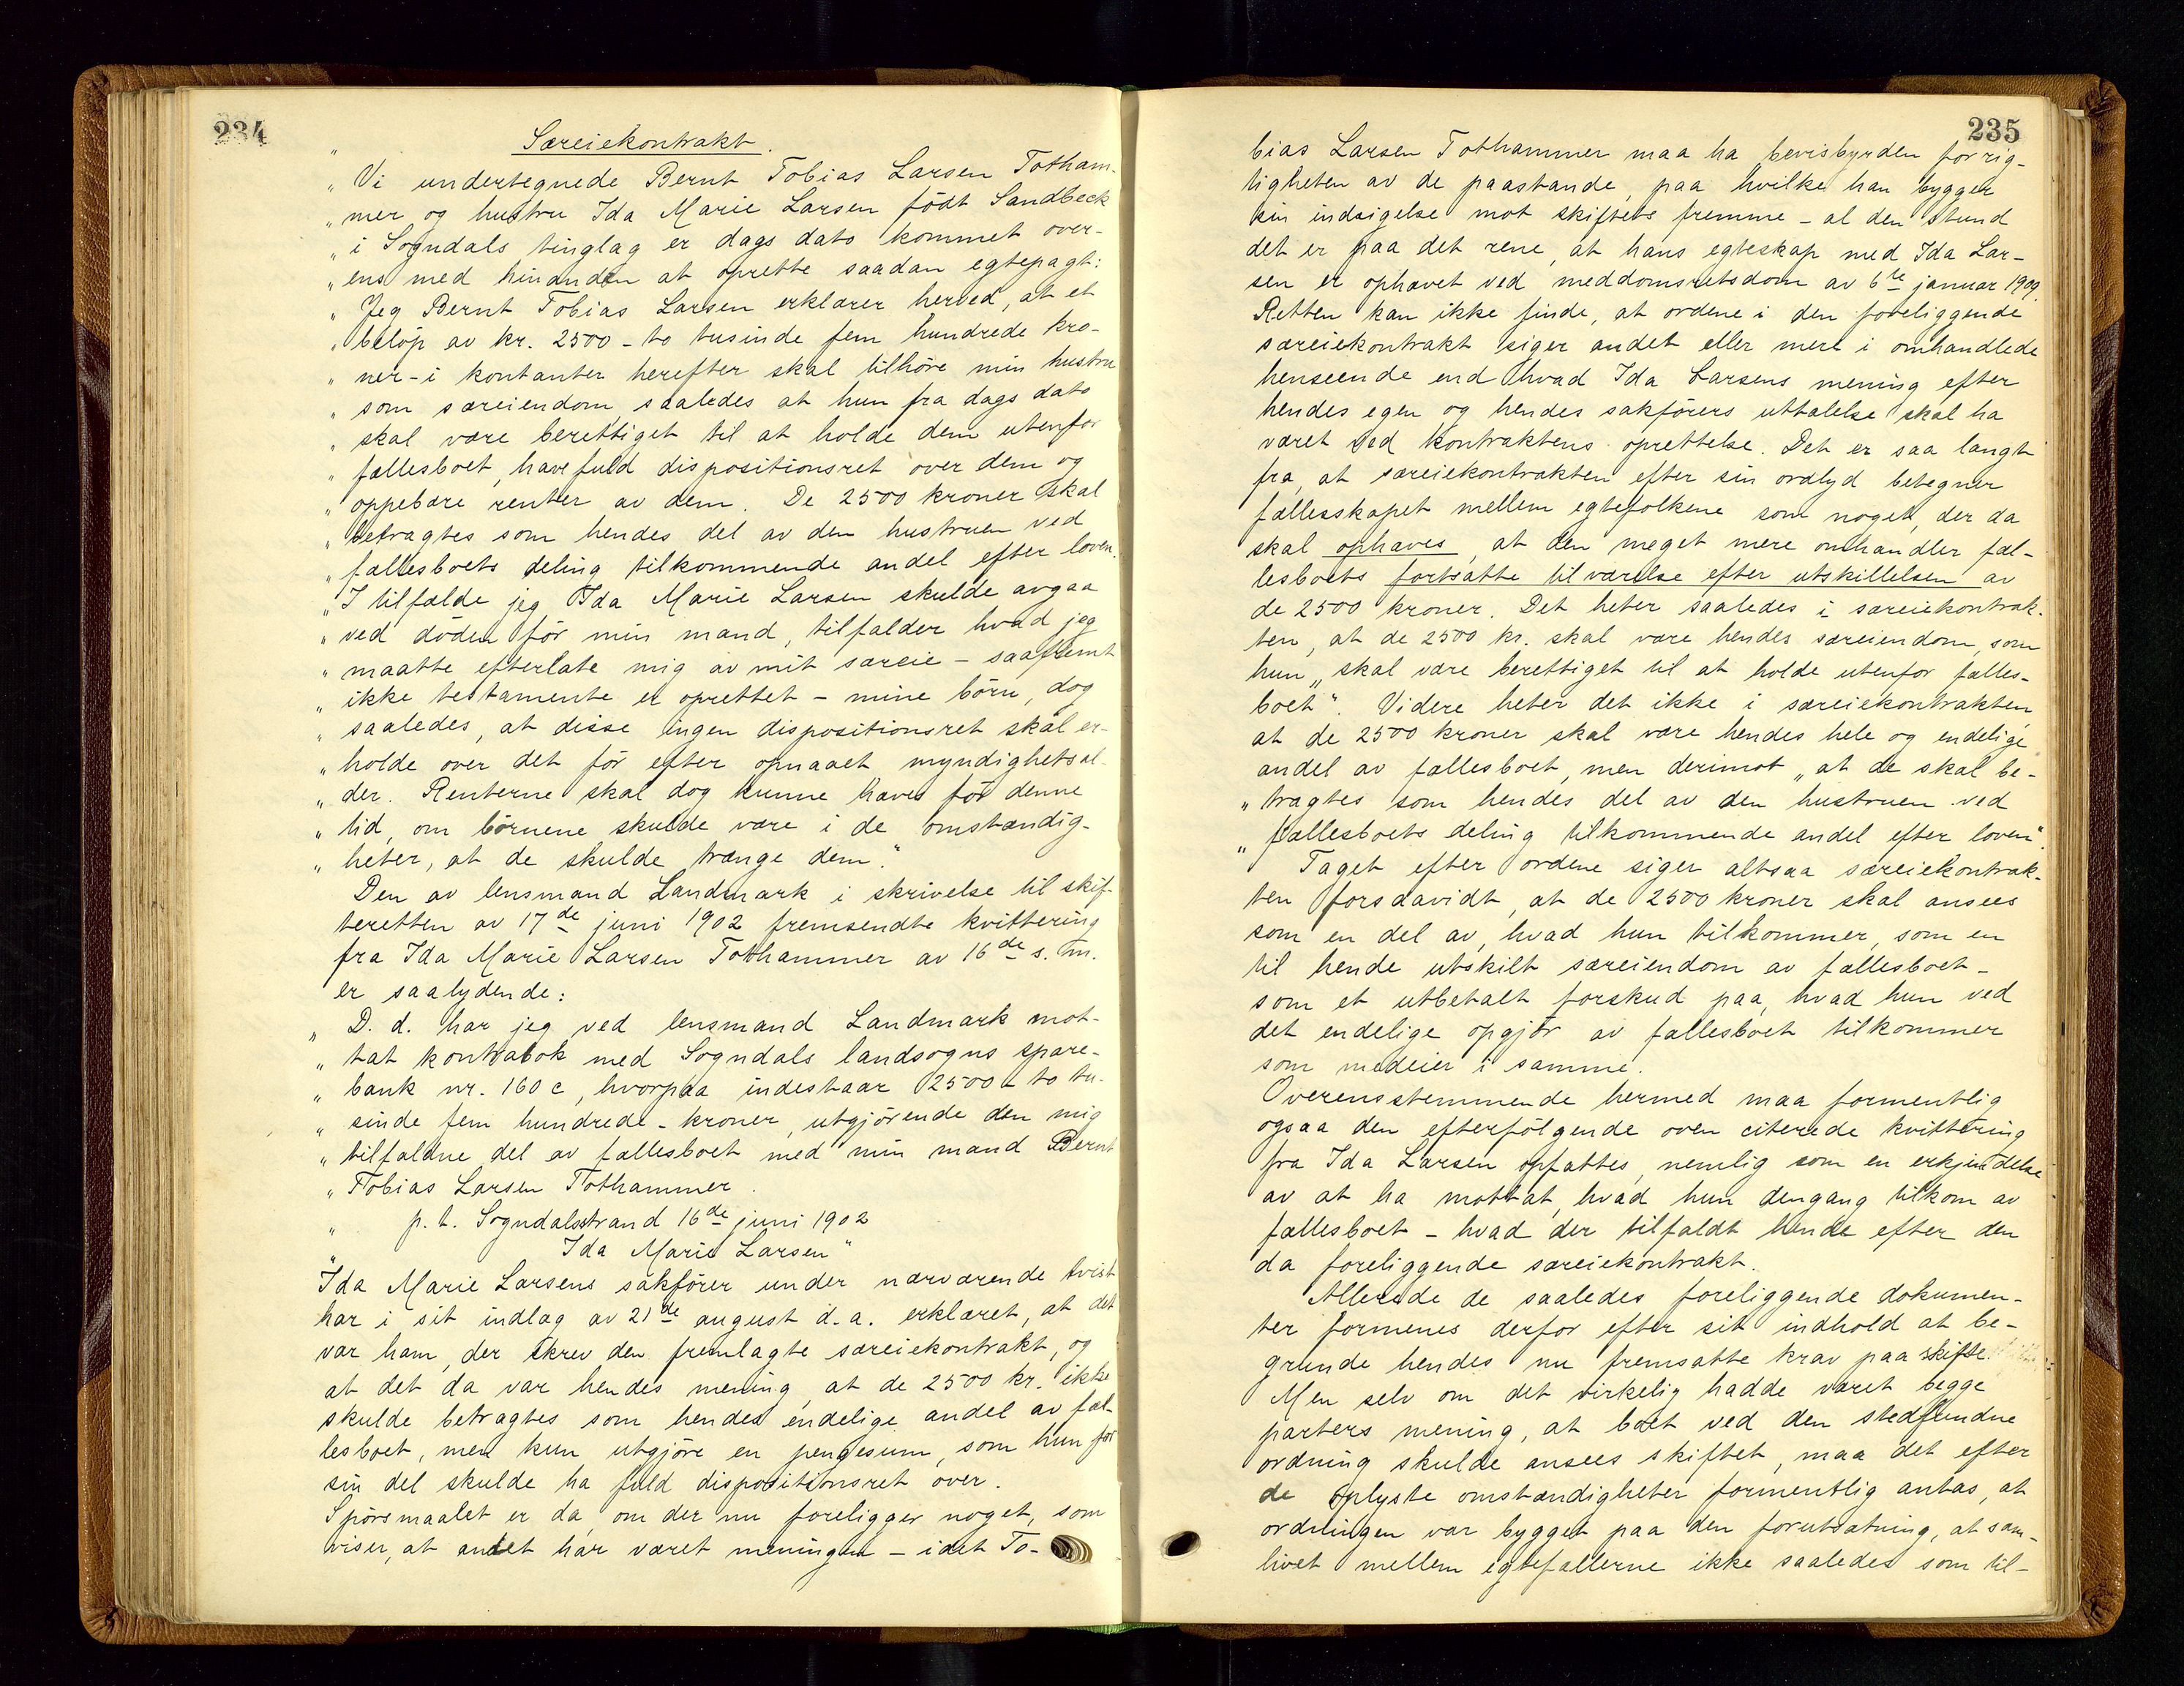 234
" Særeiekontrakt.
" Vi undertegnede Bernt Tobias Larsen Totham-
" mer og hustru Ida Marie Larsen född Sandbeck
" i Sogndals tinglag er dags dato kommet over-
" ens med hinanden at oprette saadan egtepagt:
" Jeg Bernt Tobias Larsen erklærer herved, at et
" beløp av kr. 2500 - to tusinde fem hundrede kro-
" ner - i kontanter herefter skal tilhöre min hustru
" som særeiendom, saaledes at hun fra dags dato
" skal være berettiget til at holde dem utenfor
" fællesboet, have fuld dispositionsret over dem og
" oppebære renter av dem. De 2500 kroner skal
" betragtes som hendes del av den hustruen ved
" fællesboets deling tilkommende andel efter loven.
" I tilfælde jeg Ida Marie Larsen skulde avgaa
" ved döden för min mand, tilfalder hvad jeg
" maatte efterlate mig av mit særeie - saafremt
" ikke testamente er oprettet - mine börn, dog
" saaledes, at disse ingen dispositionsret skal er-
" holde over det för efter opnaaet myndighetsal-
" der. Renterne skal dog kunne hæves för denne
" tid, om börnene skulde være i de omstændig-
" heter, at de skulde trænge dem."
Den av lensmand Landmark i skrivelse til skif-
teretten av 17de juni 1902 fremsendte kvittering
fra Ida Marie Larsen Tothammer av 16de s. m.
er saalydende:
" D. d. har jeg ved lensmand Landmark mot-
" tat kontrabok med Sogndals landsogns spare-
" bank nr. 160 c, hvorpaa indestaar 2500 - to tu-
" sinde fem hundrede - kroner, utgjörende den mig
" tilfaldne del av fællesboet med min mand Bernt
" Tobias Larsen Tothammer.
" p. t. Sogndalsstrand 16de juni 1902
" Ida Marie Larsen"
Ida Marie Larsens sakförer under nærværende tvist
har i sit indlæg av 21de august d. a. erklæret, at det
var ham, der skrev den fremlagte særeiekontrakt, og
at det da var hendes mening, at de 2500 kr. ikke
skulde betragtes som hendes endelige andel av fæl-
lesboet, men kun utgjöre en pengesum, som hun for
sin del skulde ha fuld dispositionsret over.
Spörsmaalet er da, om der nu foreligger noget, som
viser, at andet har været meningen - idet To-
235
bias Larsen Tothammer maa ha bevisbyrden for rig-
tigheten av de paastande, paa hvilke han bygger
sin indsigelse mot skiftets fremme - al den stund
det er paa det rene, at hans egteskap med Ida Lar-
sen er ophævet ved meddomsretsdom av 6te januar 1909.
Retten kan ikke finde, at ordene i den foreliggende
særeiekontrakt siger andet eller mere i omhandlede
henseende end hvad Ida Larsens mening efter
hendes egen og hendes sakförers uttalelse skal ha
været ved kontraktens oprettelse. Det er saa langt
fra, at særeiekontrakten efter sin ordlyd betegner
fællesskapet mellem egtefolkene som noget, der da
skal ophæves, at den meget mere omhandler fæl-
lesboets fortsatte tilværelse efter utskillelsen av
de 2500 kroner. Det heter saaledes i særeiekontrak-
ten, at de 2500 kr. skal være hendes særeiendom, som
hun „skal være berettiget til at holde utenfor fælles-
boet". Videre heter det ikke i særeiekontrakten,
at de 2500 kroner skal være hendes hele og endelige
andel av fællesboet, men derimot „at de skal be-
" tragtes som hendes del av den hustruen ved
" fællesboets deling tilkommende andel efter loven".
Taget efter ordene siger altsaa særeiekontrak-
ten forsaavidt, at de 2500 kroner skal ansees
som en del av, hvad hun tilkommer, som en
til hende utskilt særeiendom av fællesboet -
som et utbetalt forskud paa, hvad hun ved
det endelige opgjör av fællesboet tilkommer
som medeier i samme.
Overensstemmende hermed maa formentlig
ogsaa den efterfölgende oven citerede kvittering
fra Ida Larsen opfattes, nemlig som en erkjendelse
av at ha mottat, hvad hun dengang tilkom av
fællesboet - hvad der tilfaldt hende efter den
da foreliggende særeiekontrakt.
Allerede de saaledes foreliggende dokumen-
ter formenes derfor efter sit indhold at be-
grunde hendes nu fremsatte krav paa skifte.
Men selv om det virkelig hadde været begge
parters mening, at boet ved den stedfundne
ordning skulde ansees skiftet, maa det efter
de oplyste omstændigheter formentlig antas, at
ordningen var bygget paa den forutsætning, at sam-
livet mellem egtefællerne ikke saaledes som til-